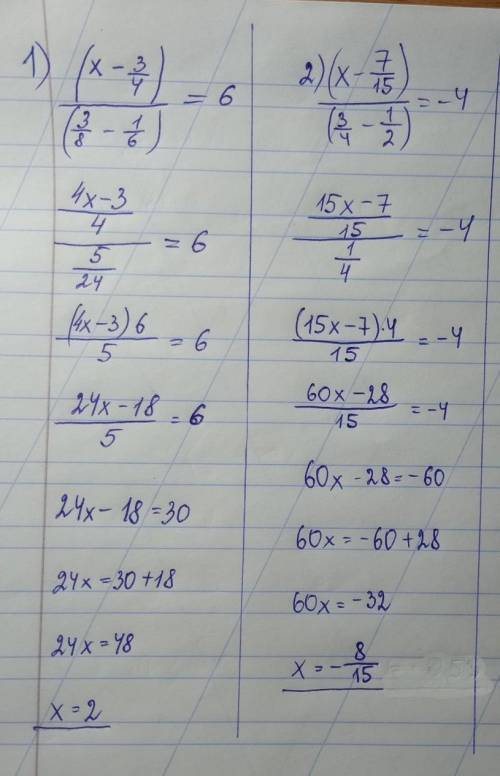 1) (x - 3/4) / (3/8 - 1/6) = 6
((4x-3)/4) / (5/24) = 6
((4x-3)6)/5 = 6
(24x-18)/5 = 6
24x - 18 = 30
24x = 30 + 18
24x = 48
x = 2
2) (x - 7/15) / (3/4 - 1/2) = -4
((15x-7)/15) / (1/4) = -4
((15x-7)·4)/15 = -4
(60x-28)/15 = -4
60x - 28 = -60
60x = -60 + 28
60x = -32
x = -8/15